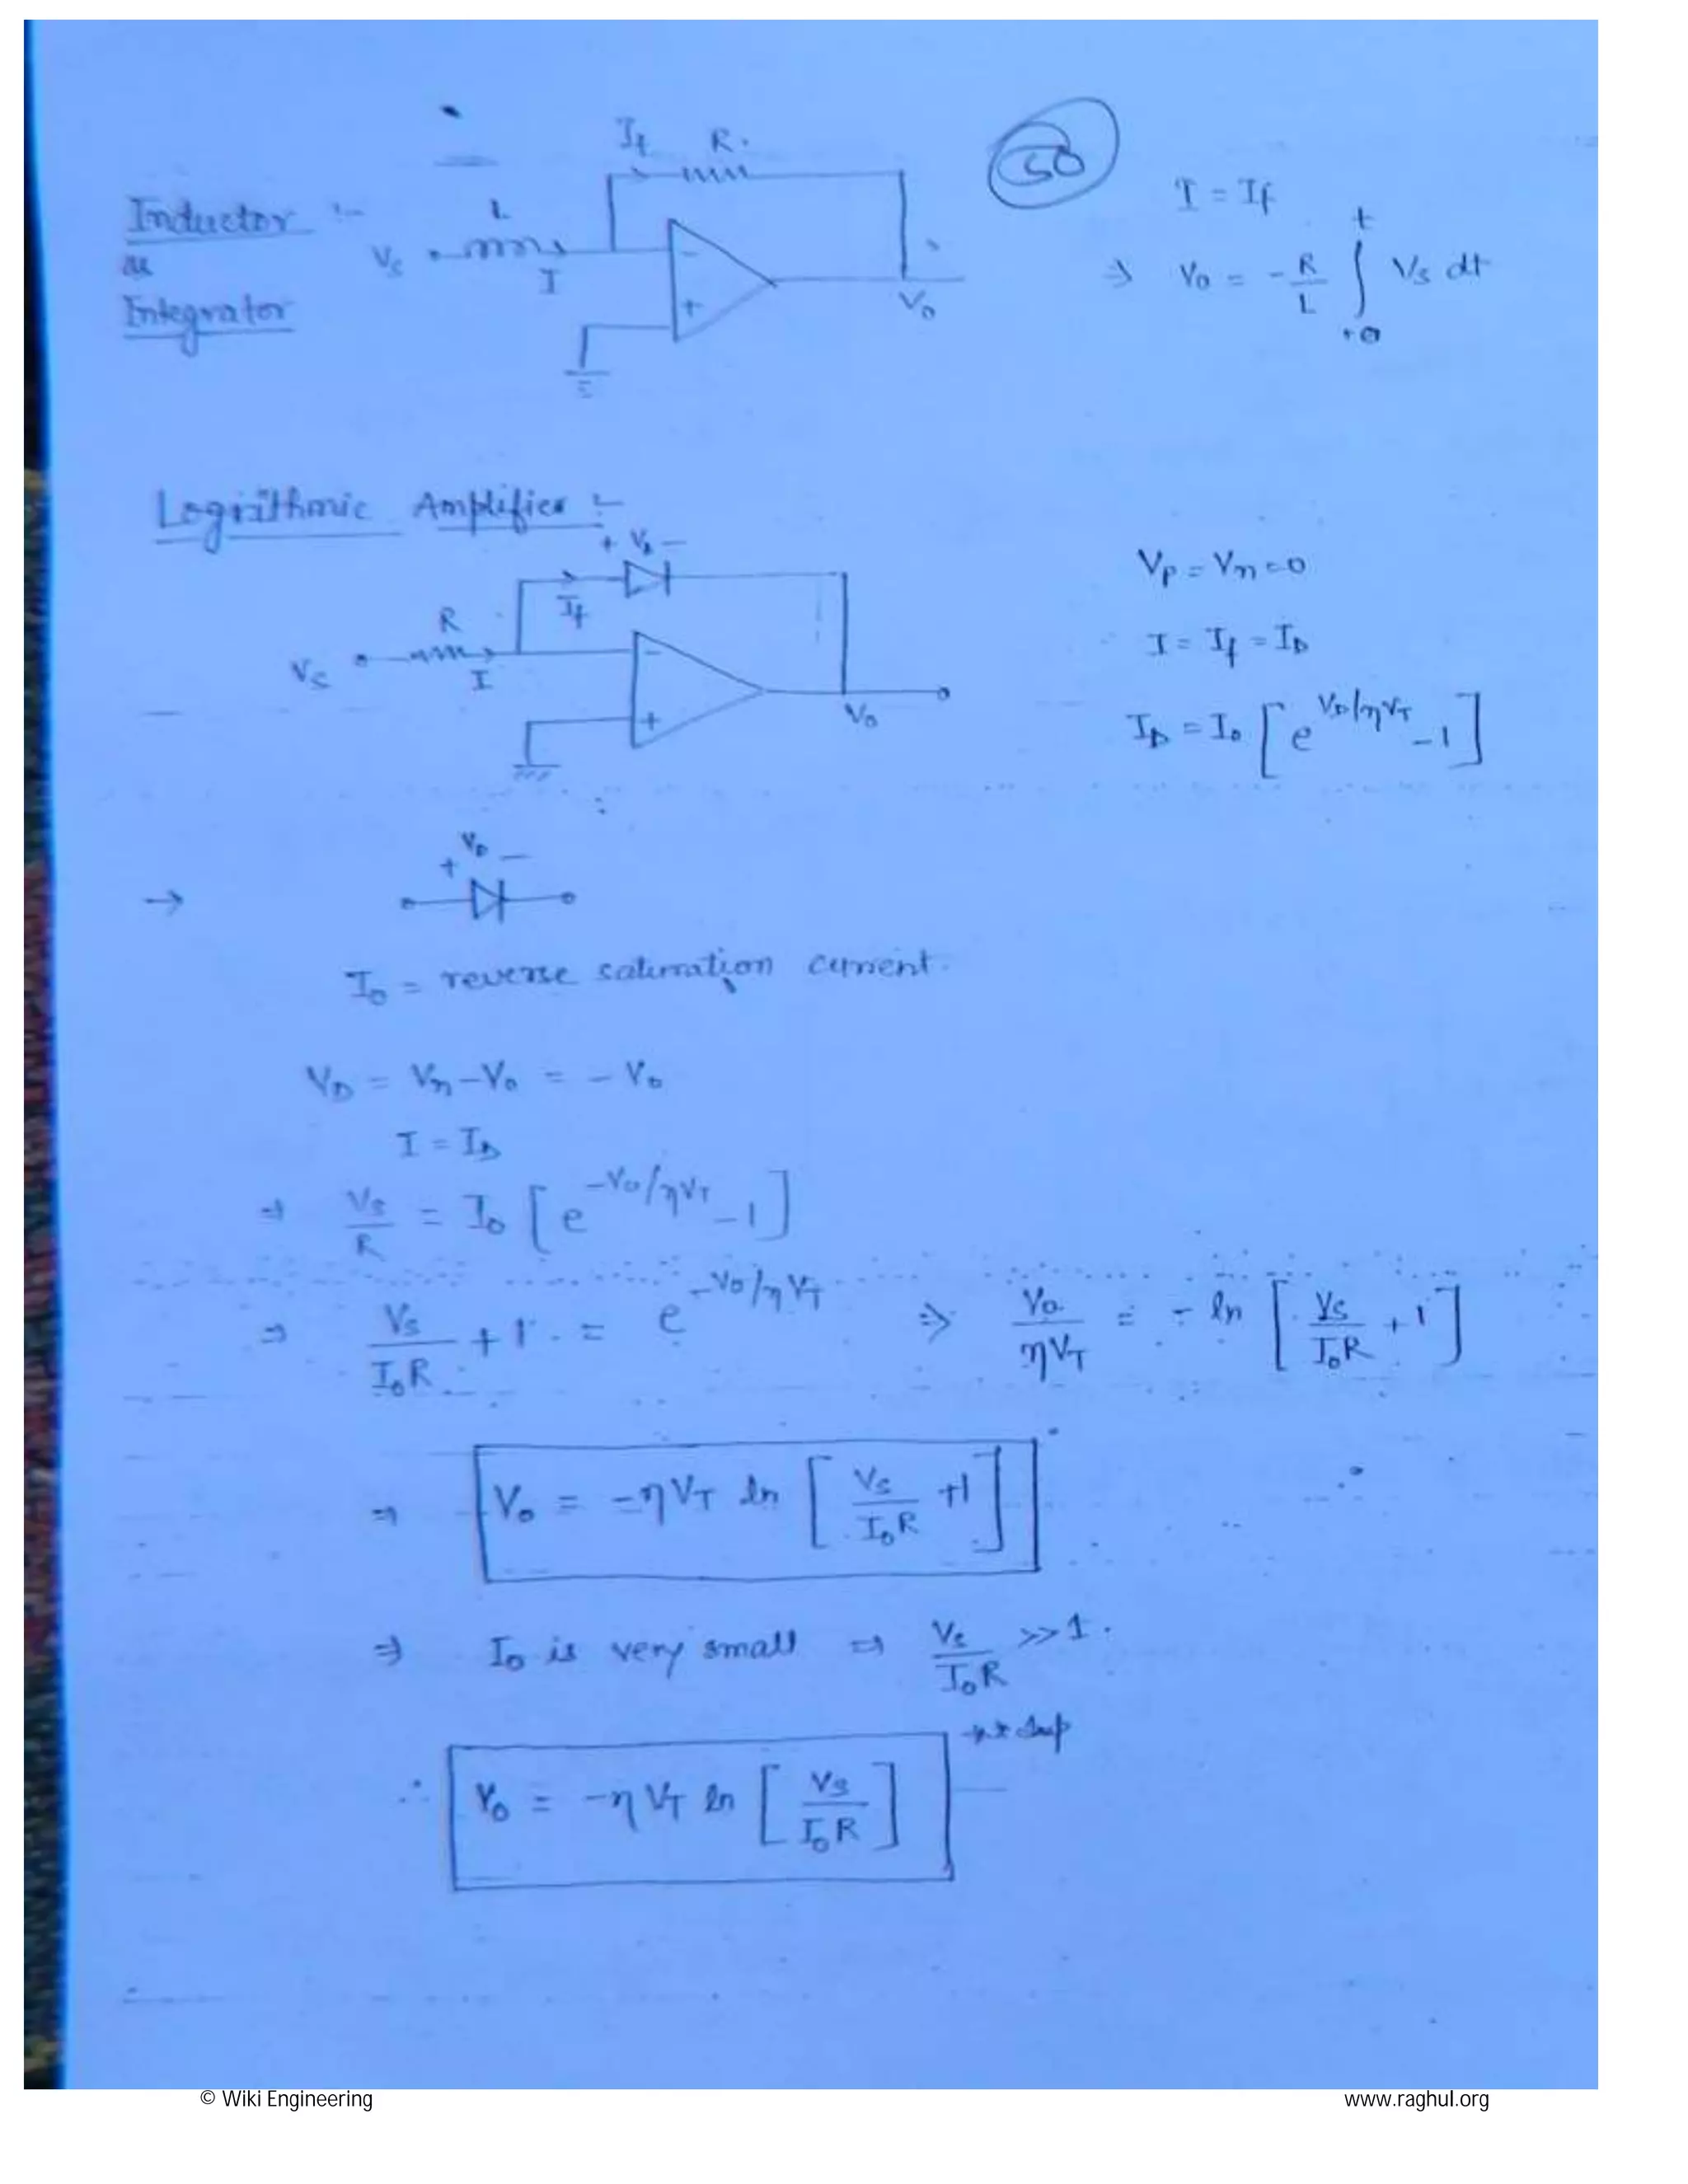 50
I = If
Inductor :-
as
Integrator
If R
L
Vs I
- +
Vo
⇒ Vo = -R/L ∫₀ᵗ Vs dt
Logrithmic Amplifier :-
+ VD -
If
R
Vs I
- +
Vo
Vp = Vn = 0
I = If = ID
ID = Io [e^(VD/ηVT) - 1]
+ VD -
→
Io = reverse saturation current.
VD = Vn - Vo = - Vo
I = ID
⇒ Vs/R = Io [e^(-Vo/ηVT) - 1]
⇒ Vs/IoR + 1 = e^(-Vo/ηVT) ⇒ Vo/ηVT = - ln [Vs/IoR + 1]
⇒ Vo = -ηVT ln [Vs/IoR + 1]
⇒ Io is very small ⇒ Vs/IoR >> 1.
** Imp
∴ Vo = -ηVT ln [Vs/IoR]
© Wiki Engineering www.raghul.org